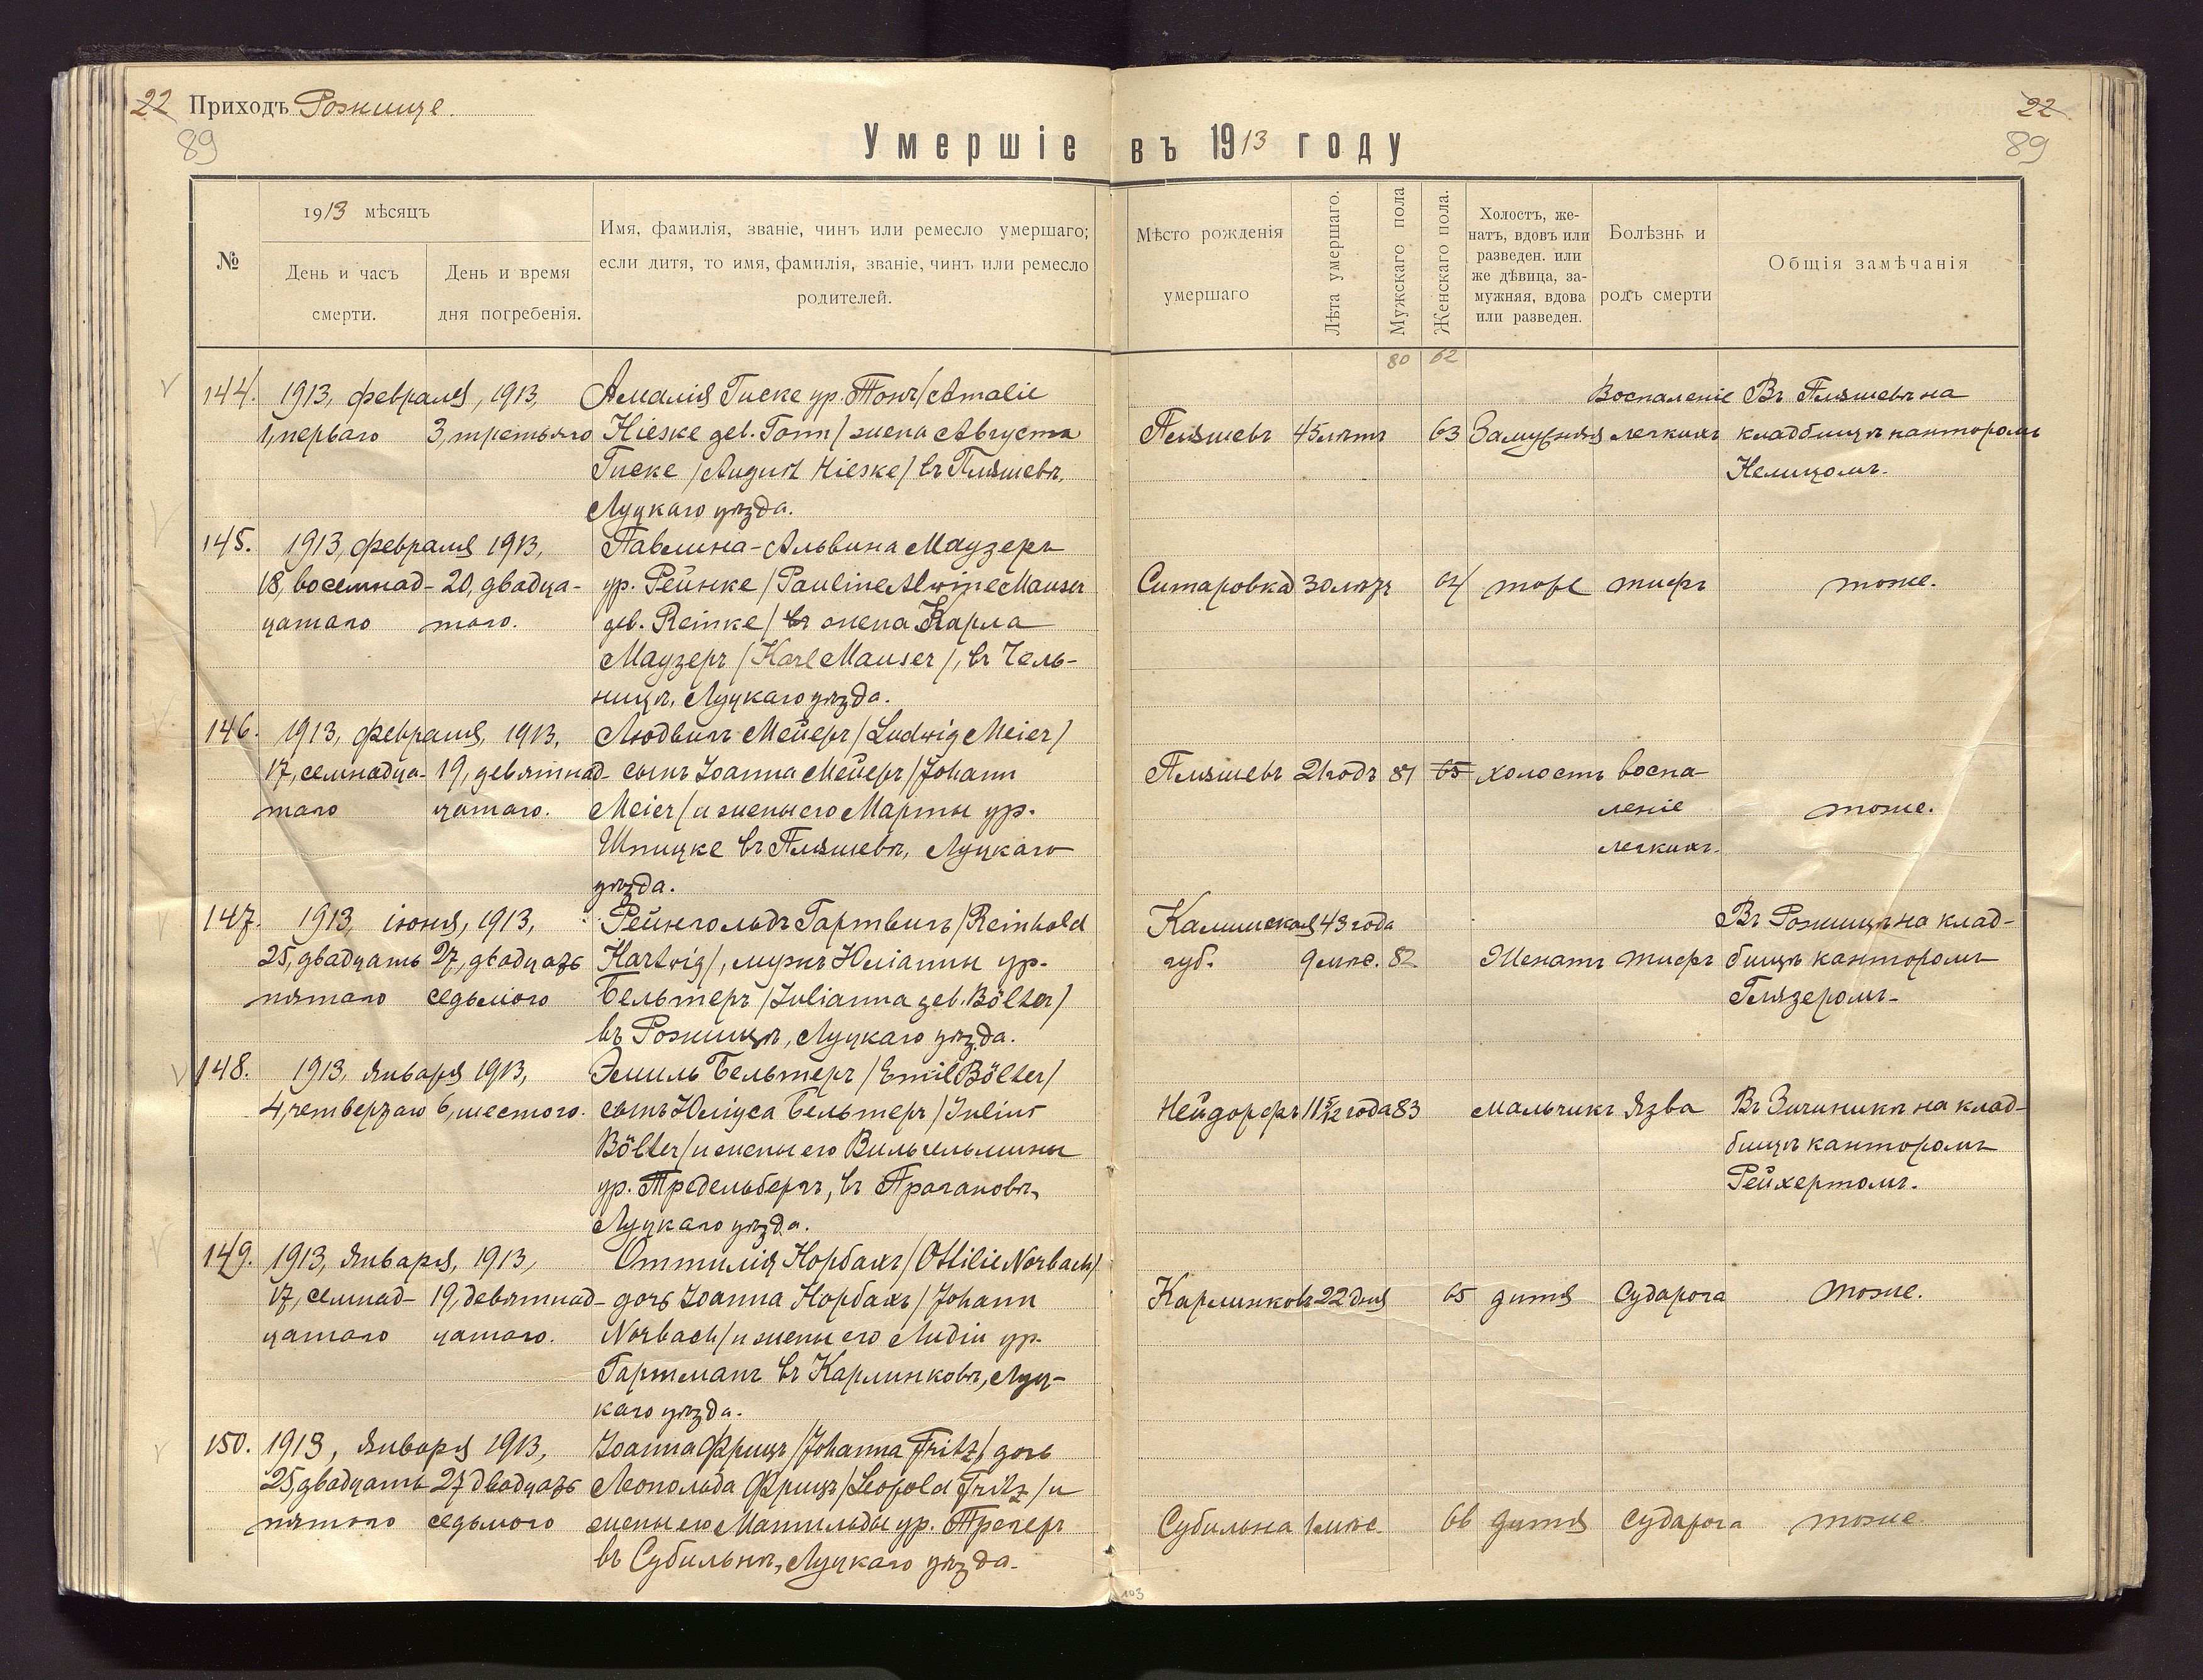 22 Приходъ Рожище.
89
22
89
Умершіе въ 1913 году
№
1913 мѣсяцъ
День и часъ
смерти.
День и время
дня погребенія.
Имя, фамилія, званіе, чинъ или ремесло умершаго;
если дитя, то имя, фамилія, званіе, чинъ или ремесло
родителей.
Мѣсто рожденія
умершаго
Лѣта умершаго.
Мужскаго пола
Женскаго пола.
Холостъ, же-
натъ, вдовъ или
разведен. или
же дѣвица, за-
мужняя, вдова
или разведен.
Болѣзнь и
родъ смерти
Общія замѣчанія
80 62
144. 1913, февраля, 1913, Амалія Гиске ур. Тонъ /Amalie
1, перваго 3, третьяго Hieske geb. Tonn/ жена Августа
Гиске /August Hieske/ въ Пляшевѣ,
Луцкаго уѣзда.
Воспаленіе Въ Пляшевѣ на
Пляшевъ 45 лѣтъ 63 Замужняя легкихъ кладбищѣ канторомъ
145. 1913, февраля 1913, Павлина-Альвина Маузеръ
18, восемнад- 20, двадца- ур. Рейнке /Pauline Alwine Mauser
цатаго таго. geb. Reinke/ въ жена Карла
Маузеръ /Karl Mauser/, въ Чель-
ницѣ, Луцкаго уѣзда.
Ситаровка 30 лѣтъ 64 тоже тифъ тоже.
146. 1913, февраля, 1913, Людвигъ Мейеръ /Ludwig Meier/
17, семнадца- 19, девятнад- сынъ Іоанна Мейеръ /Johann
таго цатаго. Meier/ и жены его Марты ур.
Шпицке въ Пляшевѣ, Луцкаго
уѣзда.
Пляшевъ 21 годъ 81 65 холостъ воспа-
леніе тоже.
легкихъ.
147. 1913, іюня, 1913, Рейнгольдъ Гартвигъ /Reinhold
25, двадцать 27, двадцать Hartwig/, мужъ Юліанны ур.
пятаго седьмого Бельтеръ /Julianna geb. Bölter/
въ Рожищѣ, Луцкаго уѣзда.
Калишская 43 года Въ Рожищѣ на клад-
губ. 9 мѣс. 82 Женатъ тифъ бищѣ канторомъ
Глязеромъ.
148. 1913, января 1913, Эмиль Бельтеръ /Emil Bölter/
4, четвертаго 6, шестого. сынъ Юліуса Бельтеръ /Julius
Bölter/ и жены его Вильгельмины
ур. Тредельбергъ, въ Прагановѣ,
Луцкаго уѣзда.
Нейдорфъ 11 5/12 года 83 мальчикъ язва Въ Зичиникѣ на клад-
бищѣ канторомъ
Рейхертомъ.
149. 1913, января, 1913, Оттилія Норбахъ /Ottilie Norbach/
17, семнад- 19, девятнад- дочь Іоанна Норбахъ /Johann
цатаго цатаго. Norbach/ и жены его Лидіи ур.
Гартманъ въ Карлинковѣ, Луц-
каго уѣзда.
Карлинковъ 22 дня 65 дитя судорога тоже.
150. 1913, января 1913, Іоанна Фрицъ /Johanna Fritz/ дочь
25, двадцать 27 двадцать Леопольда Фрицъ /Leopold Fritz/ и
пятаго седьмого жены его Матильды ур. Трегеръ
въ Субильнѣ, Луцкаго уѣзда.
Субильна 1 мѣс. 66 дитя судорога тоже
103